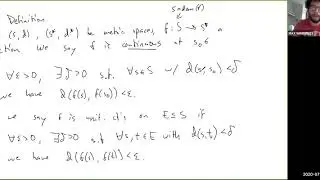 S = dom(f)
Definition
(S, d), (S*, d*) be metric spaces, f: S → S* a
We say f is continuous at s₀ ∈
∀ε>0, ∃δ>0 s.t. ∀s∈S w/ d(s, s₀) < δ
we have d(f(s), f(s₀)) < ε.
we say f is unif. cts on E⊆S if
∀ε>0, ∃δ>0 s.t. ∀s,t∈E with d(s,t) < δ
we have d(f(s), f(t)) < ε.